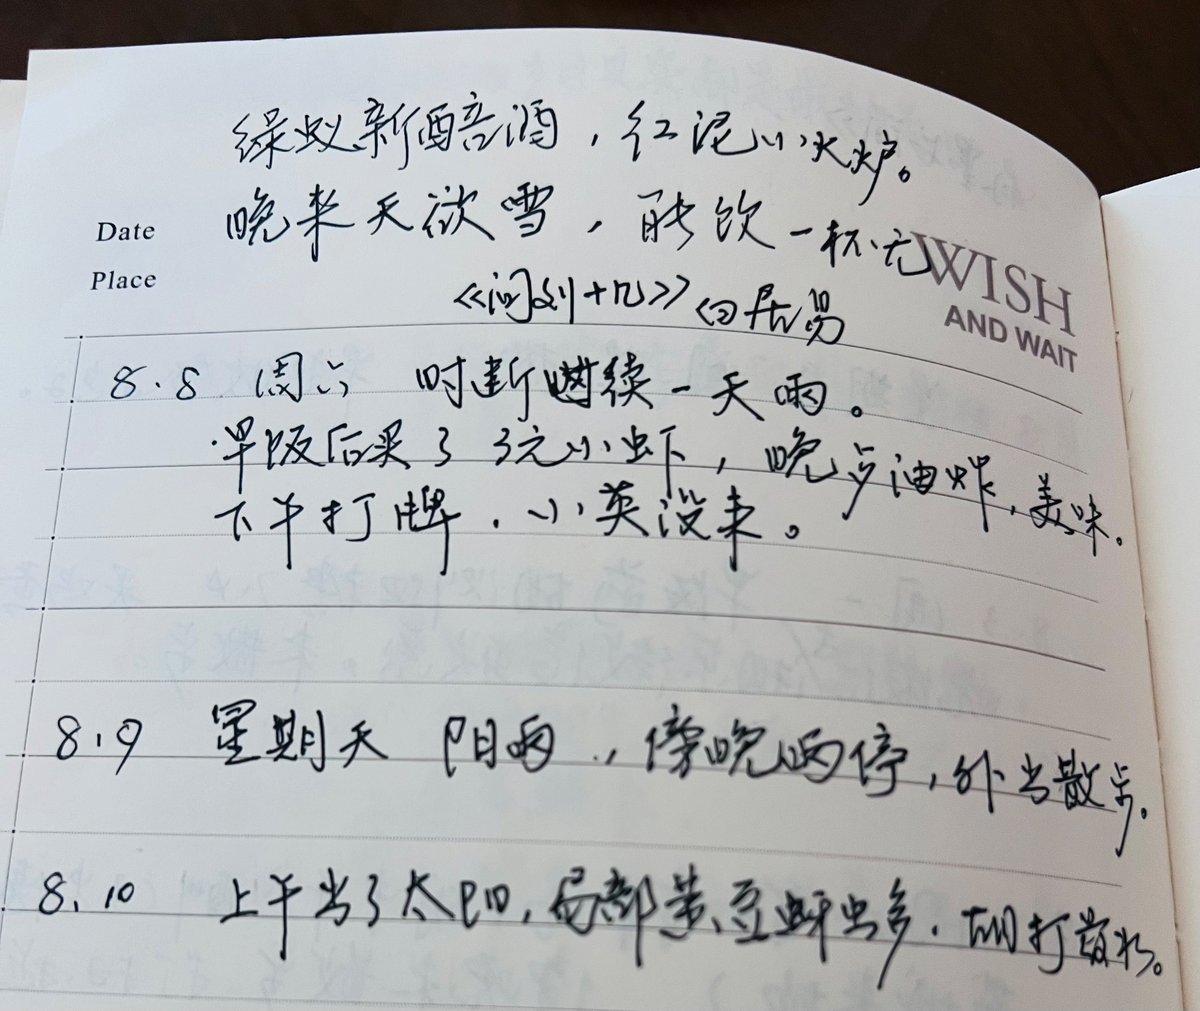 绿蚁新醅酒，红泥小火炉。
晚来天欲雪，能饮一杯无
Date
Place
WISH
AND WAIT
《问刘十九》白居易
8.8 周六 时断断续续一天雨。
早饭后买了3元小虾，晚上油炸，美味。
下午打牌，小英没来。
8.9 星期天 阴雨，傍晚雨停，外出散步。
8.10 上午出了太阳，局部黄豆蚜虫多。